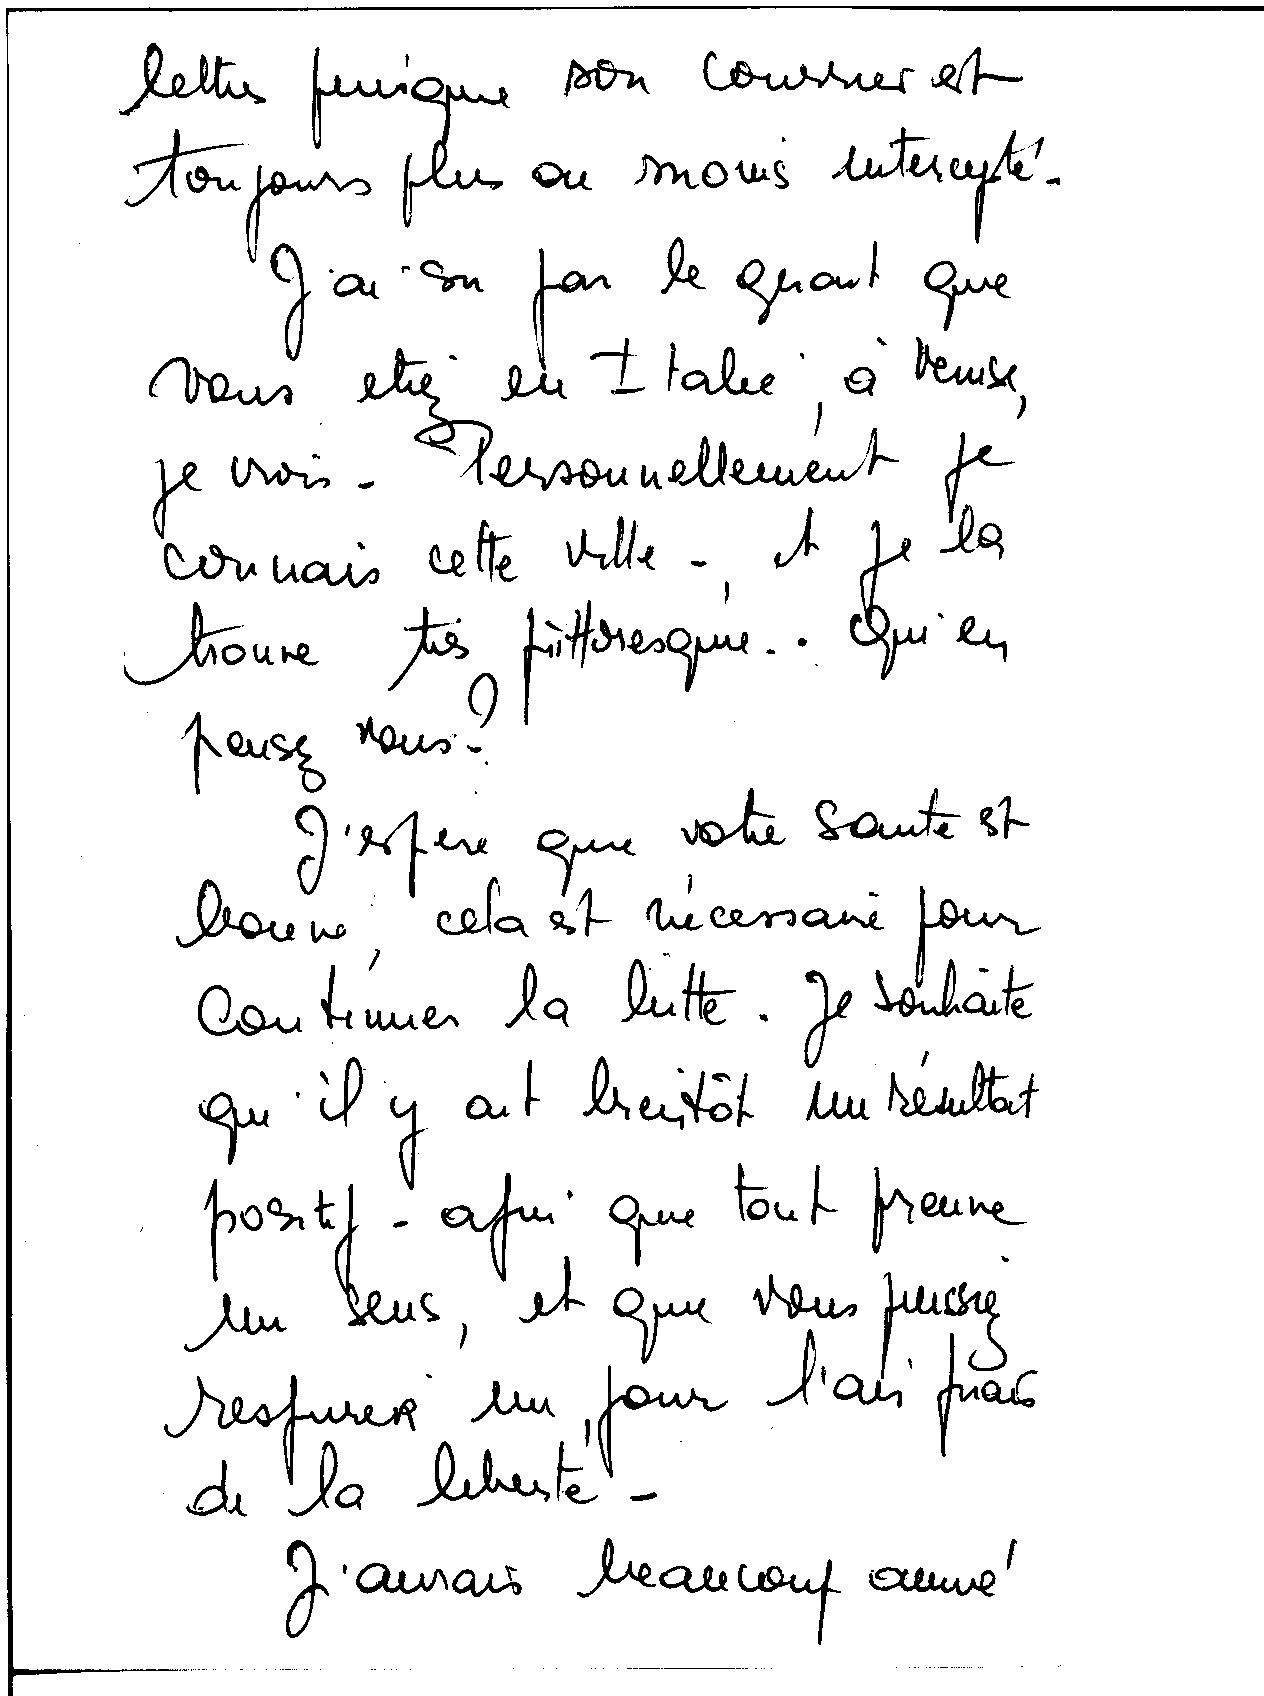 lettres puisque son courrier est
toujours plus ou moins intercepté.
J'ai su par le que
vous etiez en Italie, à Venise,
je crois - Personnellement je
connais cette ville -, et je la
trouve très pittoresque.. Qu'en
pensez vous?
J'espere que votre santé est
bonne, cela est nécessaire pour
continuer la lutte. Je souhaite
qu'il y ait bientôt un résultat
positif - afin que tout prenne
un sens, et que vous puissiez
respirer un jour l'air frais
de la liberté -
J'aurais beaucoup aimé